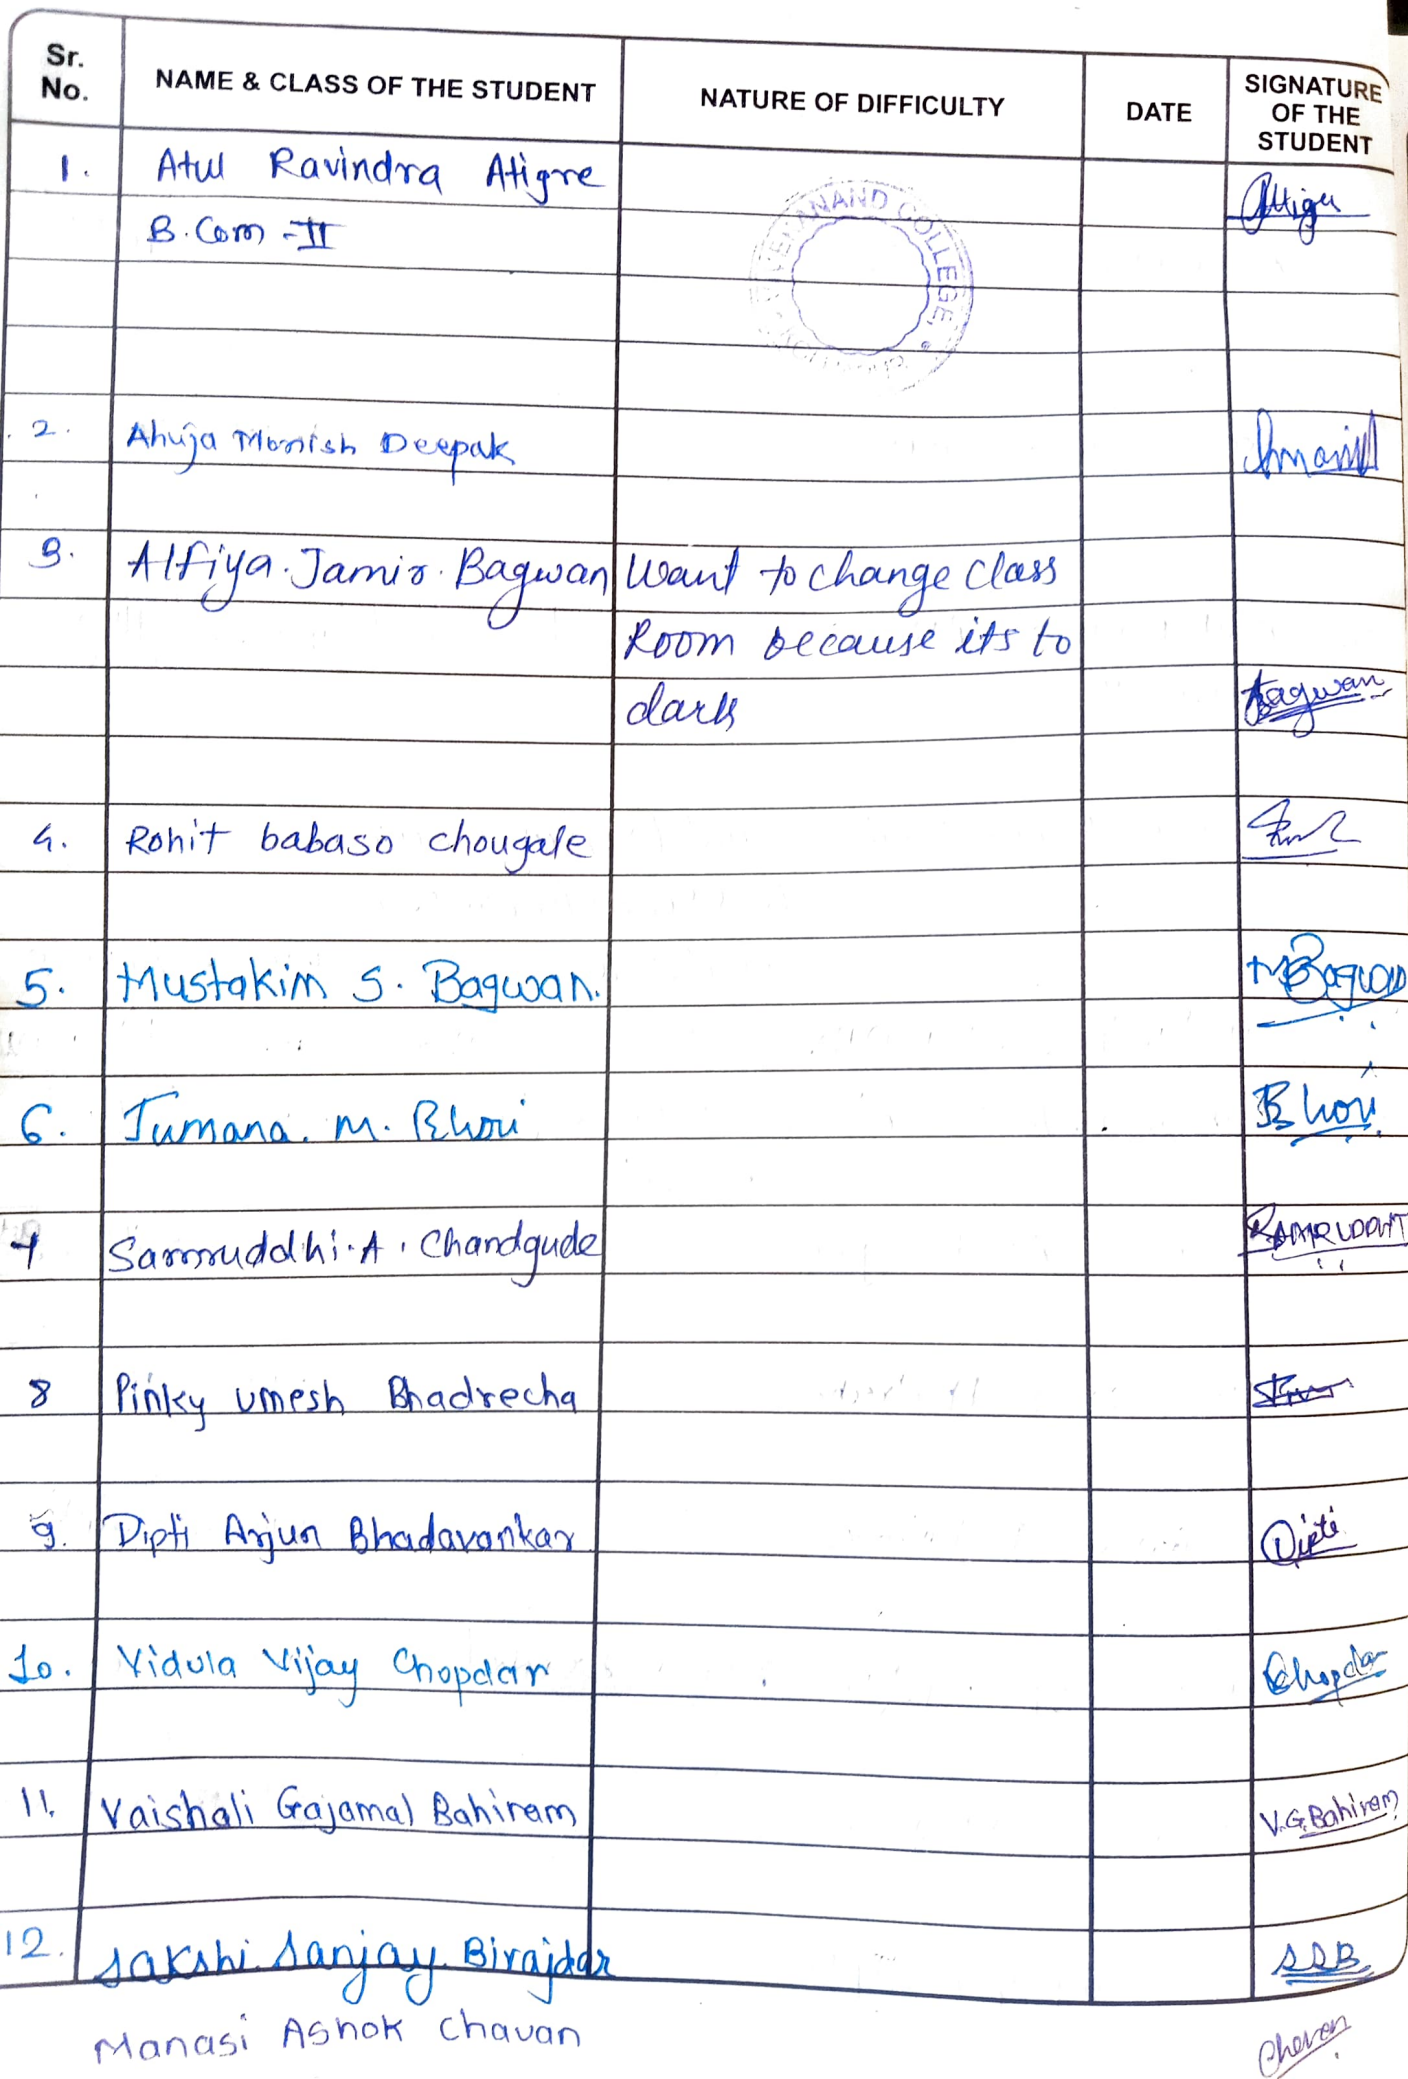 Sr. No.
NAME & CLASS OF THE STUDENT
NATURE OF DIFFICULTY
DATE
SIGNATURE OF THE STUDENT
1. Atul Ravindra Atigre
B.Com -II
VEKANAND COLLEGE,
2. Ahuja Monish Deepak
3. Alfiya. Jamir. Bagwan Want to change class
Room because its to
dark Bagwan
4. Rohit babaso chougale
5. Mustakim S. Bagwan. M Bagwan
6. Jumana. M. Bhori Bhori
7 Sammruddhi. A. Chandgude
8 Pinky umesh Bhadrecha
9. Dipti Arjun Bhadavankar Dipti
10. Vidula Vijay Chopdar Chopdar
11. Vaishali Gajamal Bahiram V.G.Bahiram
12. Sakshi Sanjay. Birajdar SSB
Manasi Ashok Chavan Chavan